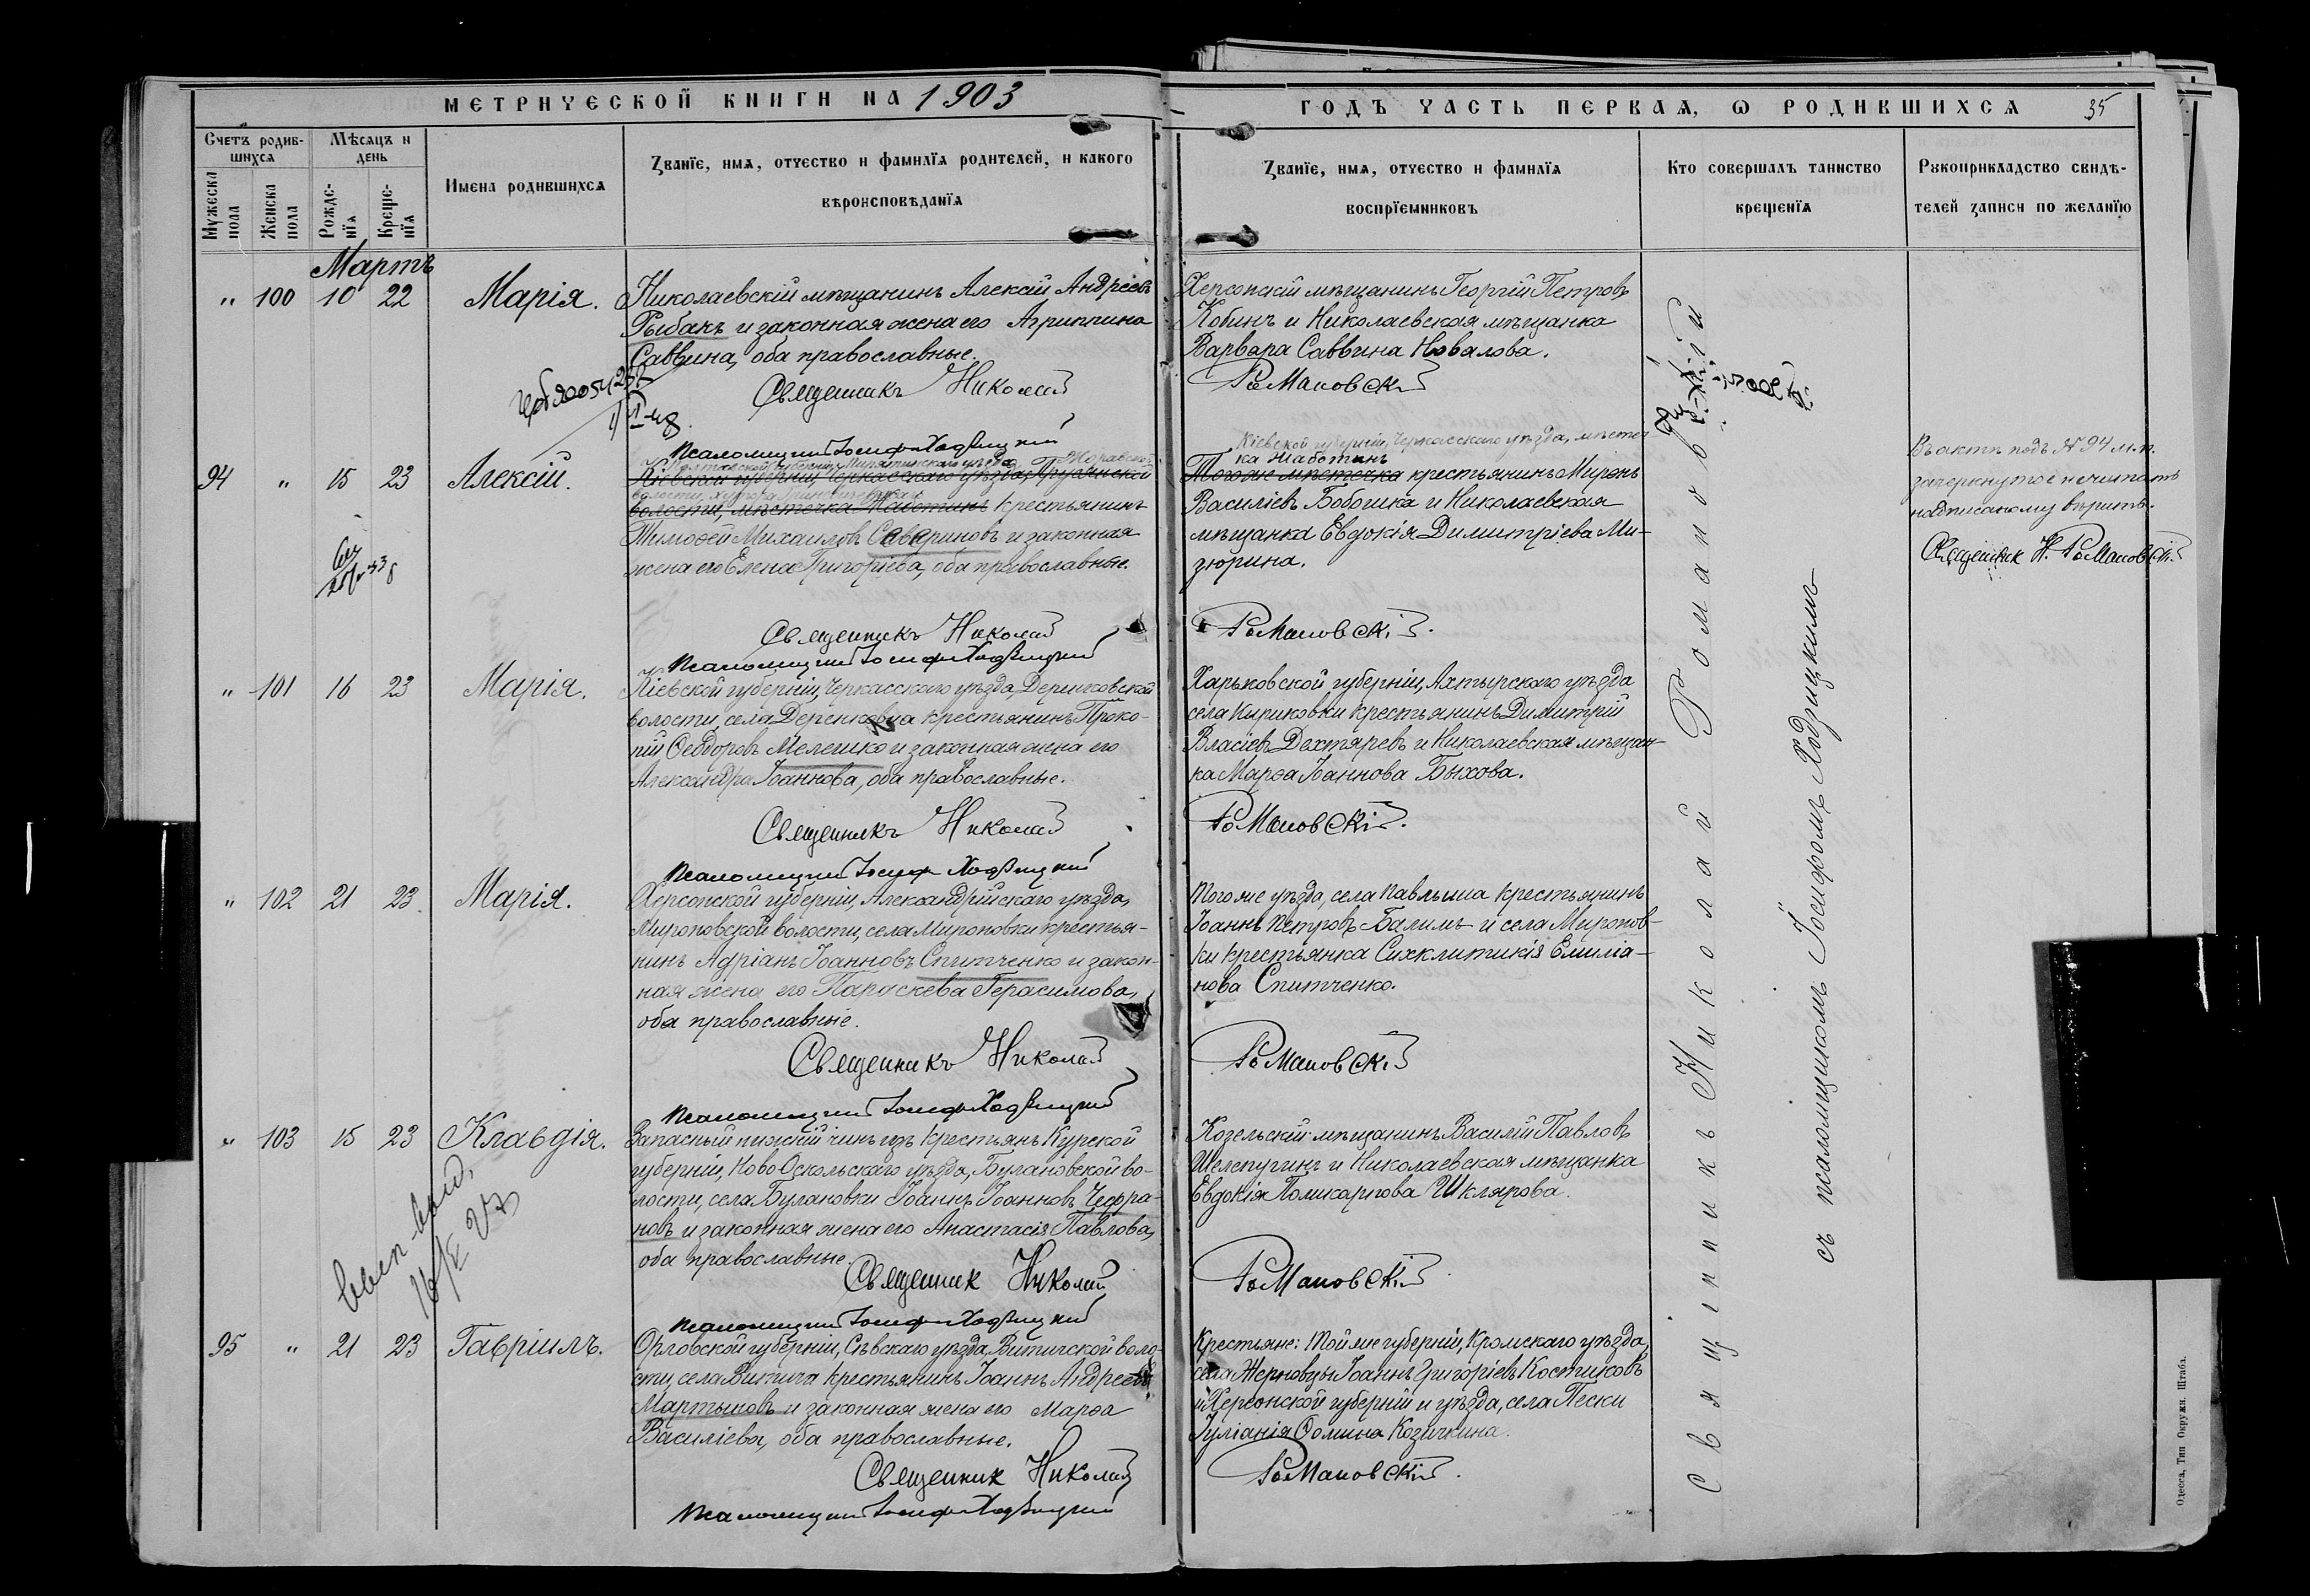 МЕТРИЧЕСКОЙ КНИГИ НА 1903
ГОДЪ ЧАСТЬ ПЕРВАЯ, Ѡ РОДИВШИХСЯ 35
Счетъ родив-
шихся
Мѣсяцъ и
день
Мужеска
пола
Женска
пола
Рожде-
нїя
Креще-
нїя
Имена родившихся
Званїе, имя, отчество и фамилїя родителей, и какого
вѣроисповѣданїя
Званїе, имя, отчество и фамилїя
воспрїемниковъ
Кто совершалъ таинство
крещенїя
Рукоприкладство свидѣ-
телей записи по желанїю
Мартъ
" 100 10 22 Марія.
Николаевскій мѣщанинъ Алексій Андреевъ
Рыбакъ и законная жена его Агриппина
Саввина, оба православные.
Священникъ Николай
Псаломщикъ Іосифъ Ходзицкій
Херсонскій мѣщанинъ Георгій Петровъ
Кобинъ и Николаевская мѣщанка
Варвара Саввина Новалова.
Романовскій
94 " 15 23 Алексій.
Кіевской губерніи, Черкасскаго уѣзда,
волости, мѣстечка Жаботинъ крестьянинъ
Тимоѳей Михаиловъ Савариновъ и законная
жена его Елена Григоріева, оба православные.
Священникъ Николай
Псаломщикъ Іосифъ Ходзицкій
Кіевской губерніи, Черкасскаго уѣзда, мѣстеч-
ка Жаботинъ
Тогоже мѣстечка крестьянинъ Миронъ
Василіевъ Бобошка и Николаевская
мѣщанка Евдокія Димитріева Ми-
зюрина.
Романовскій.
Въ актѣ подъ № 94 м.п.
зачеркнутое не читать
надписаному вѣрить.
Священник Н. Романовскій
" 101 16 23 Марія.
Кіевской губерніи, Черкасскаго уѣзда, Деренковской
волости, села Деренковца крестьянинъ Проко-
пій Ѳеодоровъ Мелешко и законная жена его
Александра Іоаннова, оба православные.
Священникъ Николай
Псаломщикъ Іосифъ Ходзицкій
Харьковской губерніи, Ахтырскаго уѣзда
села Кириковки крестьянинъ Димитрій
Власіевъ Дехтяревъ и Николаевская мѣщан-
ка Марѳа Іоаннова Быхова.
Романовскій.
" 102 21 23 Марія.
Херсонской губерніи, Александрійскаго уѣзда,
Мироновской волости, села Мироновки крестья-
нинъ Адріанъ Іоанновъ Спитченко и закон-
ная жена его Параскева Герасимова,
оба православные.
Священникъ Николай
Псаломщикъ Іосифъ Ходзицкій
Того же уѣзда, села Павлыша крестьянинъ
Іоаннъ Петровъ Балимъ и села Миронов-
ки крестьянка Синклитикія Емиліа-
нова Спитченко.
Романовскій
" 103 15 23 Клавдія.
Запасный нижній чинъ изъ крестьянъ Курской
губерніи, Ново Оскольскаго уѣзда, Булановской во-
лости, села Булановки Іоаннъ Іоанновъ Чефра-
новъ и законная жена его Анастасія Павлова,
оба православные.
Священник Николай
Псаломщикъ Іосифъ Ходзицкій
Козельскій мѣщанинъ Василій Павловъ
Шелепугинъ и Николаевская мѣщанка
Евдокія Поликарпова Шклярова.
Романовскій
95 " 21 23 Гавріилъ.
Орловской губерніи, Сѣвскаго уѣзда, Витичской воло-
сти, села Витича крестьянинъ Іоаннъ Андреевъ
Мартыновъ и законная жена его Марѳа
Василіева, оба православные.
Священник Николай
Псаломщикъ Іосифъ Ходзицкій
Крестьяне: Той же губерніи, Кромскаго уѣзда,
села Жерновцы Іоаннъ Григоріевъ Костиковъ
и Херсонской губерніи и уѣзда, села Пески
Іуліанія Ѳомина Козичкина.
Романовскій.
Священникъ Николай Романовскій
съ псаломщикомъ Іосифомъ Ходзицкимъ
Одесса, Тип Окружн. Штаба.